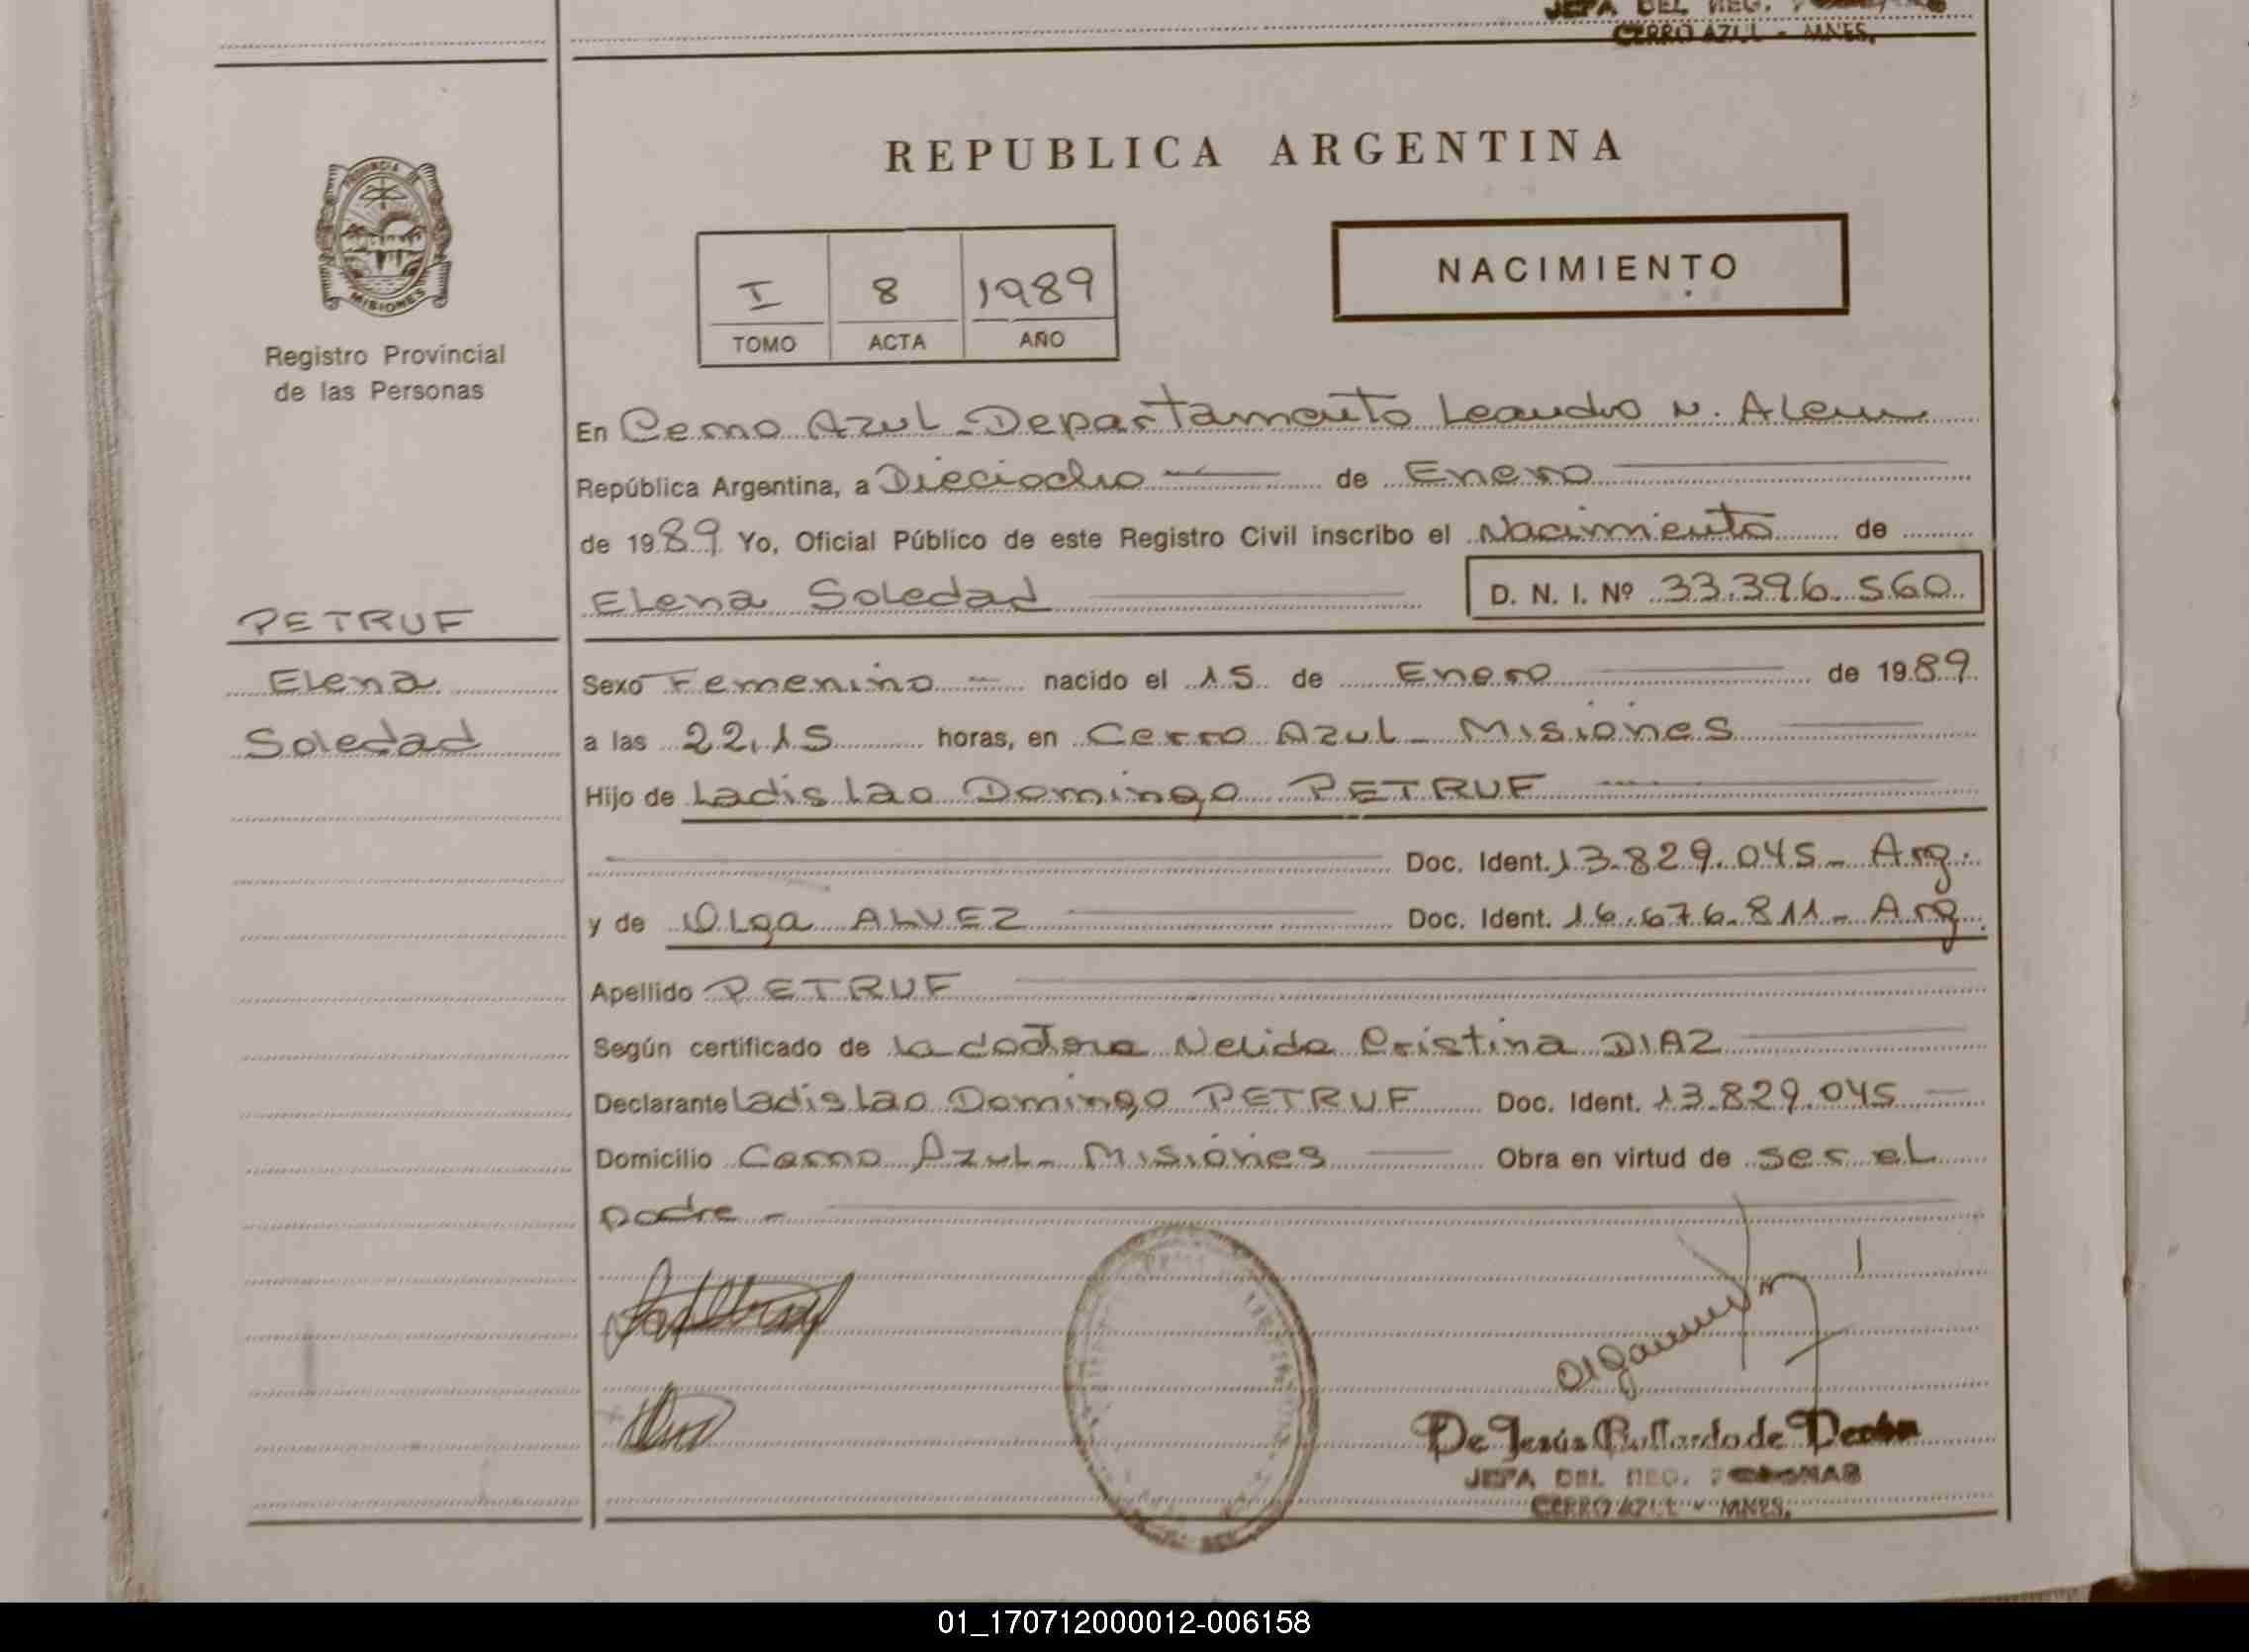 JEFA DEL REG.
CERRO AZUL - MNES.
PROVINCIA DE
MISIONES
Registro Provincial
de las Personas
REPUBLICA ARGENTINA
I 8 1989
TOMO ACTA AÑO
NACIMIENTO
En Cerro Azul - Departamento Leandro N. Alem
República Argentina, a Dieciocho de Enero
de 1989 Yo, Oficial Público de este Registro Civil inscribo el Nacimiento de
Elena Soledad D. N. I. Nº 33.396.560
PETRUF
Elena
Soledad
Sexo Femenino - nacido el 15 de Enero de 1989
a las 22,15 horas, en Cerro Azul - Misiones
Hijo de Ladislao Domingo PETRUF
Doc. Ident. 13.829.045 - Arg.
y de Olga ALVEZ Doc. Ident. 16.676.811 - Arg.
Apellido PETRUF
Según certificado de la doctora Nelida Cristina DIAZ
Declarante Ladislao Domingo PETRUF Doc. Ident. 13.829.045 -
Domicilio Cerro Azul - Misiones Obra en virtud de ser el
padre -
De Jesús
JEFA DEL REG.
CERRO AZUL - MNES.
01_170712000012-006158